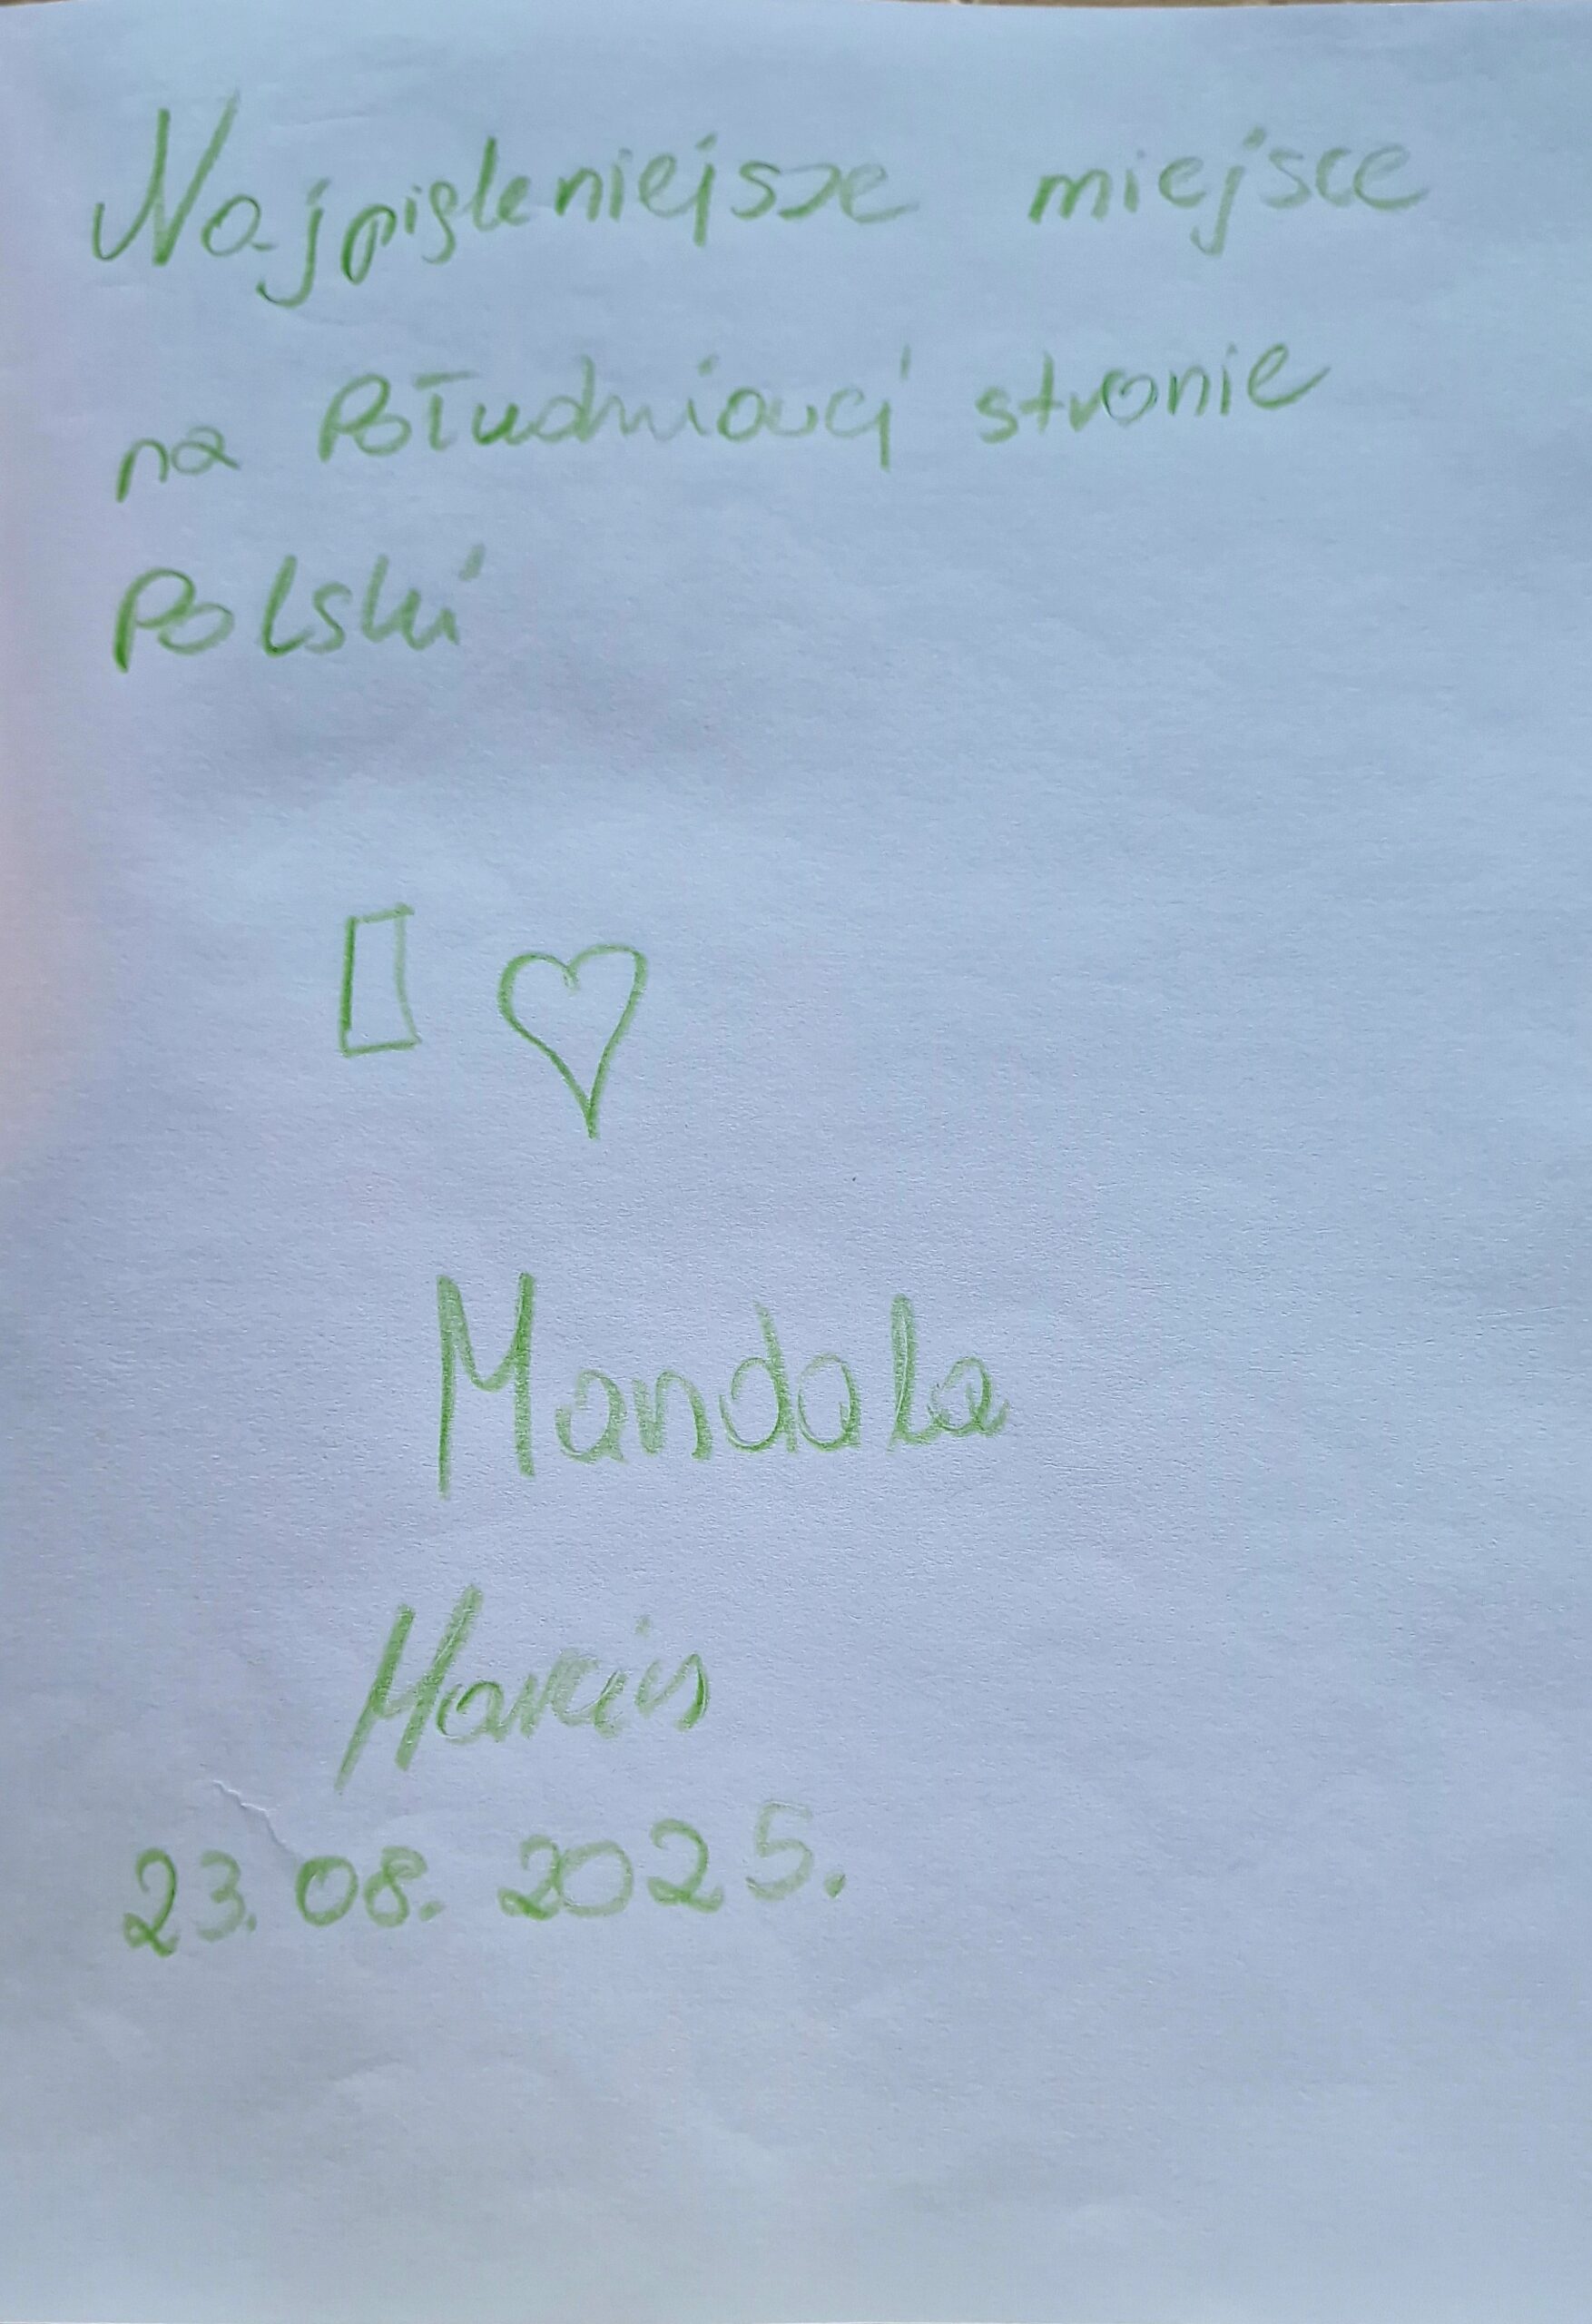 Najpiękniejsze miejsce
na Południowej stronie
Polski
I ♡
Mandala
Marcin
23.08.2025.